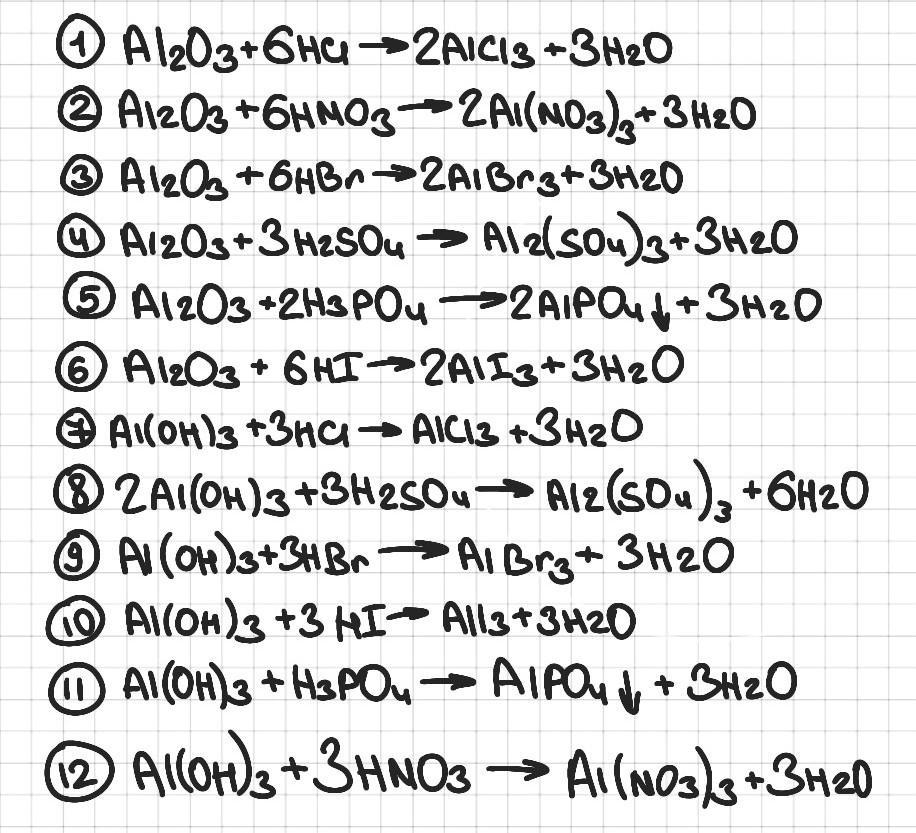 ① Al2O3+6HCl→2AlCl3+3H2O
② Al2O3+6HNO3→2Al(NO3)3+3H2O
③ Al2O3+6HBr→2AlBr3+3H2O
④ Al2O3+3H2SO4→Al2(SO4)3+3H2O
⑤ Al2O3+2H3PO4→2AlPO4↓+3H2O
⑥ Al2O3+6HI→2AlI3+3H2O
⑦ Al(OH)3+3HCl→AlCl3+3H2O
⑧ 2Al(OH)3+3H2SO4→Al2(SO4)3+6H2O
⑨ Al(OH)3+3HBr→AlBr3+3H2O
⑩ Al(OH)3+3HI→AlI3+3H2O
⑪ Al(OH)3+H3PO4→AlPO4↓+3H2O
⑫ Al(OH)3+3HNO3→Al(NO3)3+3H2O